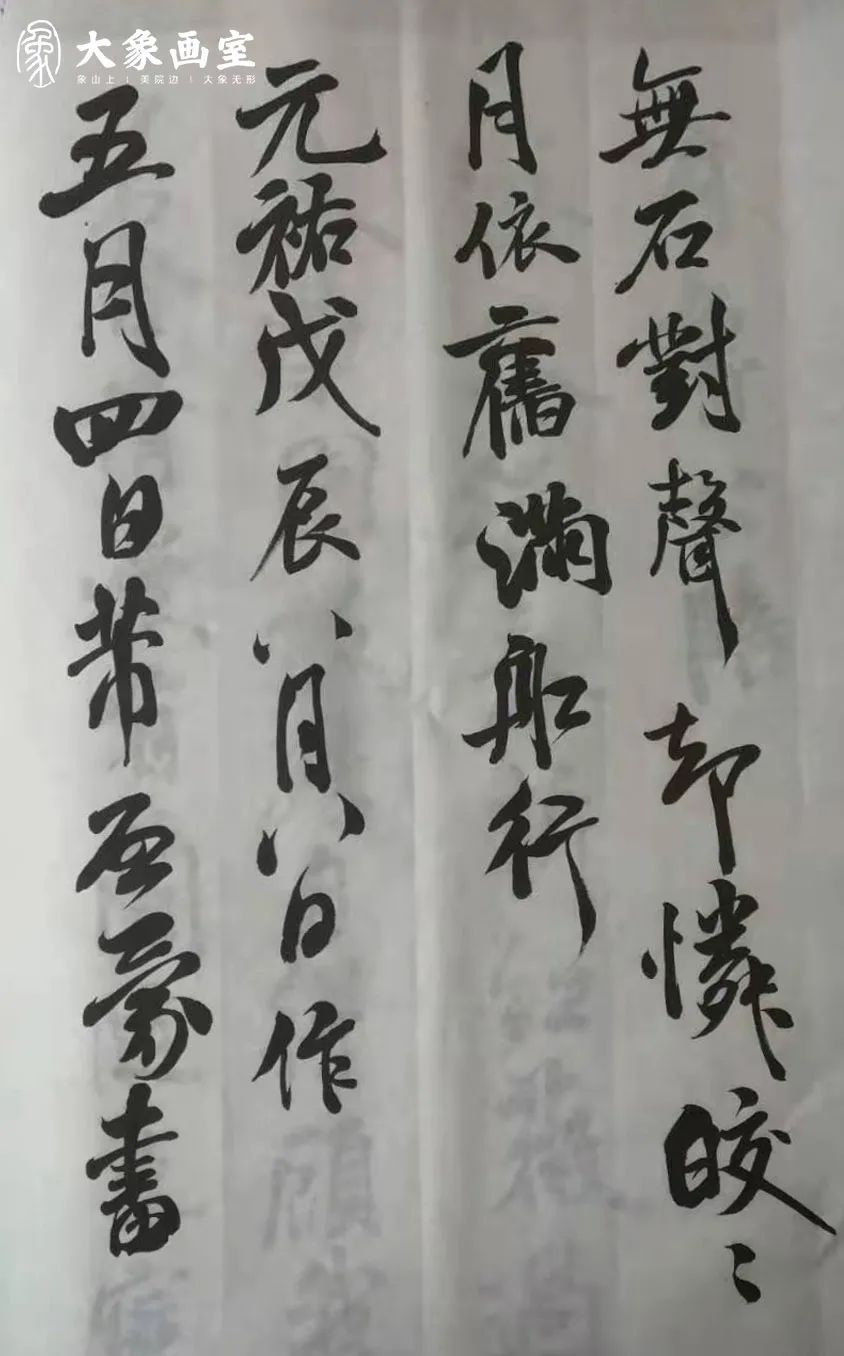 大象画室
象山上 | 美院边 | 大象无形
無石對聲却憐皎〻
月依舊滿舡行
元祐戊辰八月八日作
五月四日豪書